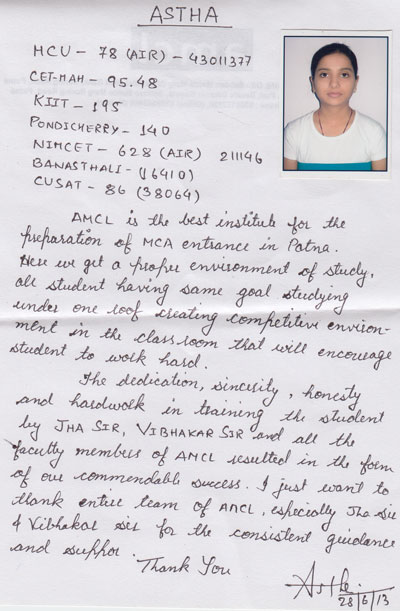 ASTHA
HCU - 78 (AIR) - 43011377
CET-MAH - 95.48
KIIT - 195
PONDICHERRY - 140
NIMCET - 628 (AIR) 211146
BANASTHALI - (16410)
CUSAT - 86 (38064)
AMCL is the best institute for the
preparation of MCA entrance in Patna.
Here we get a proper environment of study,
all student having same goal studying
under one roof creating competitive environ-
ment in the classroom that will encourage
student to work hard.
The dedication, sincerity, honesty
and hardwork in training the student
by JHA SIR, VIBHAKAR SIR and all the
faculty members of AMCL resulted in the form
of our commendable success. I just want to
thank entire team of AMCL, especially Jha sir
& Vibhakar sir for the consistent guidance
and suppor.
Thank You
Astha
28/6/13